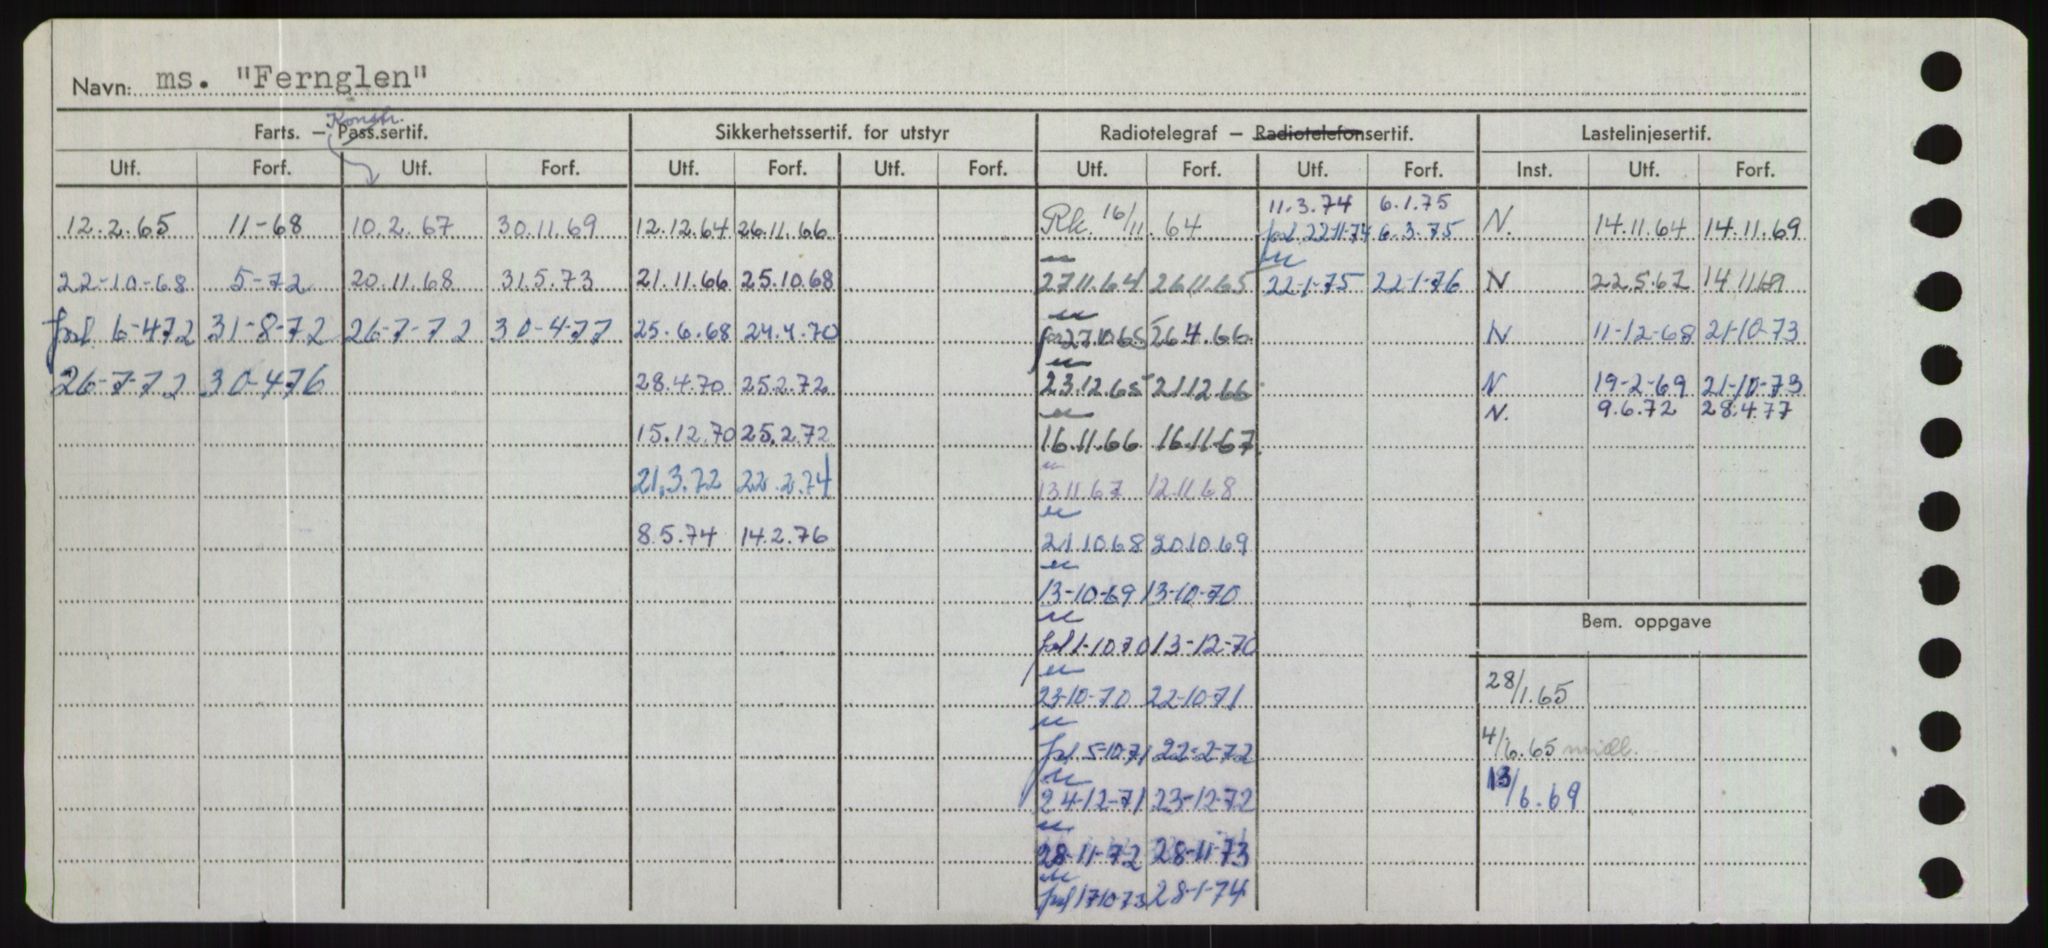 Navn: ms. "Fernglen"
Konstr.
Farts. – Pass.sertif. Sikkerhetssertif. for utstyr Radiotelegraf – Radiotelefonsertif. Lastelinjesertif.
Utf. Forf. Utf. Forf. Utf. Forf. Utf. Forf. Utf. Forf. Utf. Forf. Inst. Utf. Forf.
11.3.74 6.1.75
12.2.65 11-68 10.2.67 30.11.69 12.12.64 26.11.66 Rk. 16/11.64 forl. 22-11-74 6.3.75 N. 14.11.64 14.11.69
22-10-68 5-72 20.11.68 31.5.73 21.11.66 25.10.68 27.11.64 26.11.65 22-1-75 22-1-76 N 22.5.67 14.11.69
forl. 6-4-72 31-8-72 26-7-72 30-4-77 25.6.68 24.4.70 27.10.65 26.4.66 N 11-12-68 21-10-73
26-7-72 30-4-76 28.4.70 25.2.72 23.12.65 21.12.66 N 19-2-69 21-10-73
N. 9.6.72 28.4.77
15.12.70 25.2.72 16.11.66 16.11.67
21.3.72 22.2.74 13.11.67 12.11.68
8.5.74 14.2.76 21.10.68 20.10.69
13-10-69 13-10-70
Bem. oppgave
forl 1-10-70 13-12-70
28/1.65
23-10-70 22-10-71
4/6.65 midl.
forl. 5-10-71 22-2-72
13/6.69
24-12-71 23-12-72
28-11-72 28-11-73
forl 17-10-73 28-1-74